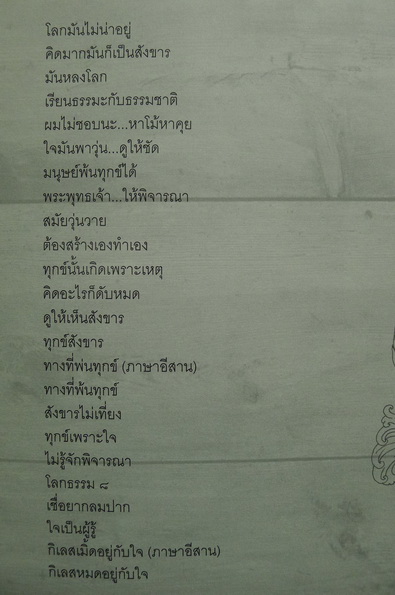 โลกมันไม่น่าอยู่
คิดมากมันก็เป็นสังขาร
มันหลงโลก
เรียนธรรมะกับธรรมชาติ
ผมไม่ชอบนะ...หาโม้หาคุย
ใจมันพาวุ่น...ดูให้ชัด
มนุษย์พ้นทุกข์ได้
พระพุทธเจ้า...ให้พิจารณา
สมัยวุ่นวาย
ต้องสร้างเองทำเอง
ทุกข์นั้นเกิดเพราะเหตุ
คิดอะไรก็ดับหมด
ดูให้เห็นสังขาร
ทุกข์สังขาร
ทางที่พ่นทุกข์ (ภาษาอีสาน)
ทางที่พ้นทุกข์
สังขารไม่เที่ยง
ทุกข์เพราะใจ
ไม่รู้จักพิจารณา
โลกธรรม ๘
เชื่อยากลมปาก
ใจเป็นผู้รู้
กิเลสเมิ้ดอยู่กับใจ (ภาษาอีสาน)
กิเลสหมดอยู่กับใจ